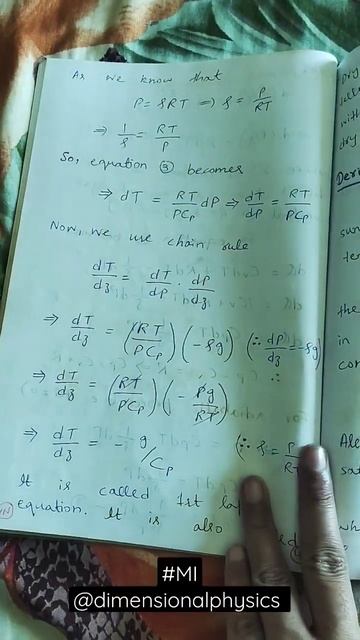 As we know that
P = ρRT ⟹ ρ = P/RT
⟹ 1/ρ = RT/P
So, equation ③ becomes
⟹ dT = RT/PCp dP ⟹ dT/dP = RT/PCp
Now, we use chain rule
dT/dz = dT/dP · dP/dz
⟹ dT/dz = (RT/PCp) (-ρg) (∵ dP/dz = -ρg)
⟹ dT/dz = (RT/PCp) (-Pg/RT)
⟹ dT/dz = - g/Cp (∵ ρ = P/RT
It is called 1st
equation. It is also
#MI
@dimensionalphysics